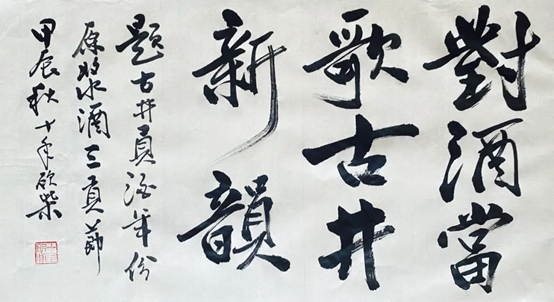 對酒當
歌古井
新韻
題古井貢酒年份
原漿酒三貢節
甲辰秋十年砍柴